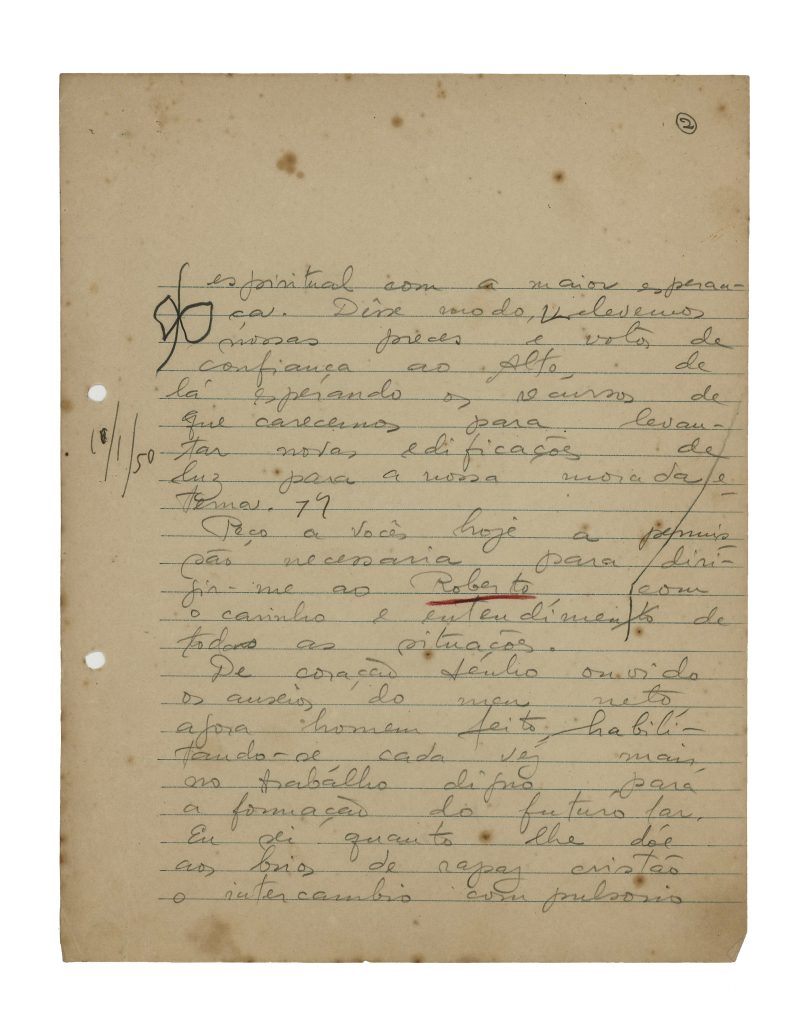 2
espiritual com a maior esperan-
ça. Dêsse modo, elevemos
nossas preces e votos de
confiança ao Alto, de
lá esperando os recursos de
que carecemos para levan-
tar novas edificações de
luz para a nossa morada e-
terna.
Peço a vocês hoje a permis-
são necessaria para diri-
gir-me ao Roberto com
o carinho e entendimento de
todas as situações.
De coração tenho ouvido
os anseios do meu neto,
agora homem feito, habili-
tando-se cada vez mais
no trabalho digno para
a formação do futuro lar.
Eu sei quanto lhe dóe
aos brios de rapaz cristão
o intercambio compulsorio
10/1/50